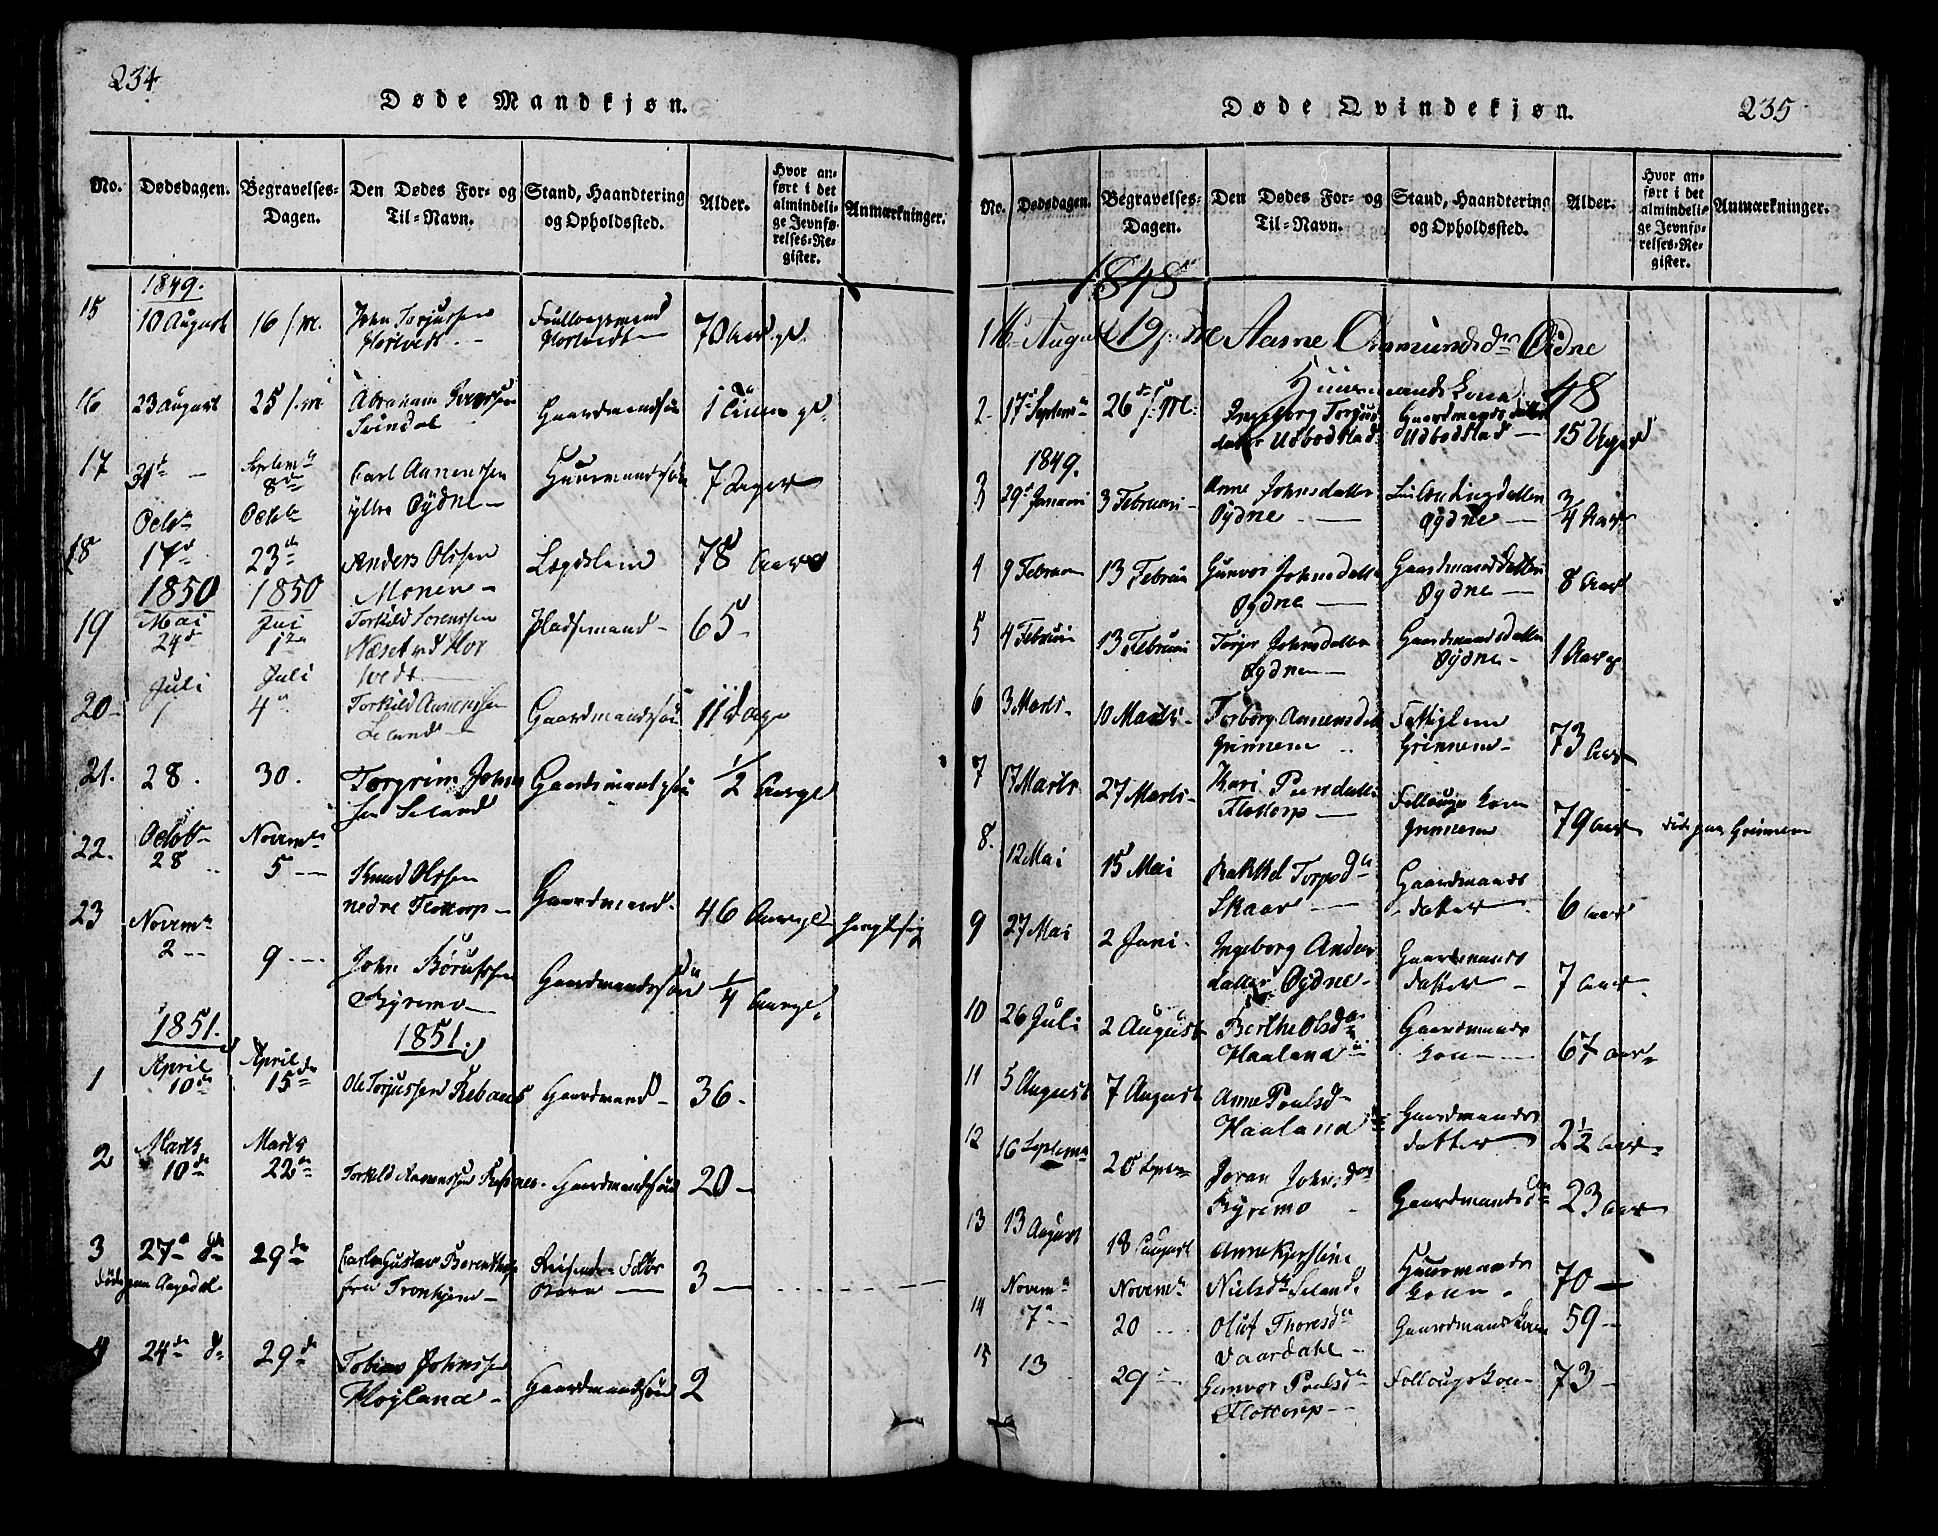 234
Døde Mandkjøn.
No.
Dødsdagen.
Begravelses-Dagen.
Den Dødes For- og Til-Navn.
Stand, Haandtering og Opholdssted.
Alder.
Hvor anført i det almindelige Jevnførelses-Register.
Anmærkninger.
1849.
15 10 August 16 /m. John Torjussen 70 Aar gl.
Hortvedt
16 23 August 25 /m Abraham Gaardmandssøn 1 Time gl.
Svindal
17 31te Septemb 8de Carl Aanenssen Huusmandssøn 7 Dager
yttre Øydne
Octob Octob
18 17d 23de Anders Olssen Lægdslem 78 Aar
Monen
1850 1850
19 Mai 24d Juni 1te Torkild Sørenssen Pladsemand 65
Næset ved Hortvedt
20 Juli 1 Juli 4 Torkild Aanenssen Gaardmandssøn 11 Dage
21. 28. 30. Torgrim Johnssen Seland Gaardmandssøn 1/2 Aar gl
22. Octob 28 Novemb 5 Knud Olssen Gaardmand 46 Aar gl
nedre Flottorp
23 Novemb 2 9 John Børufssen Gaardmandssøn 1/4 Aar gl.
Kyremo
1851. 1851.
1 April 10de April 15de Ole Torjussen Rebaas Gaardmand 36
2 Marts 10de Marts 22de Torkild Aanenssen Gaardmandssøn 20
3 27d 29de Carl Gustav Berenthsen Reisende 3
døde paa Aagedal fra Tronhjem Børn
4 24de 29d Tobias Johnssen Gaardmandssøn 2
Høyland
235
Døde Qvindekjøn.
No.
Dødsdagen.
Begravelses-Dagen.
Den Dødes For- og Til-Navn.
Stand, Haandtering og Opholdssted.
Alder.
Hvor anført i det almindelige Jevnførelses-Register.
Anmærkninger.
1848
1 16 August 19 /m Aasne Omundsdr Øidne
Huusmands Kona 48
2 17d Septemb 26de /M. Ingeborg Torjusdatter Udbodstad Gaardmands datter Udbodstad 15 Uger
1849.
3 29d Januari 3 Februari Anne Johnsdatter Øydne Øydne 3/4 Aar
4 9 Februar 13 Februar Gunvor Johnsdatter Øydne Gaardmands datter Øydne 8 Aar
5 4 Februari 13 Februari Torjer Johnsdatter Øydne Gaardmandsdatter Øydne 1 Aar
6 3 Marts 10 Marts Torborg Aanensdatter Grinnem Fattiglem Grinnem 73 Aar
7 17 Marts 27 Marts Kari Flottorp Kone Grinnem 79 Aar døde paa Grinnem
8. 12 Mai 15 Mai Rakkel Torpsd Skaar Gaardmands datter 6 Aar
9 27 Mai 2 Juni Ingeborg Andersdatter Øydne Gaardmands datter 7 Aar
10 26 Juli 2 August Berthe Olsd Haaland Gaardmands Kone 67 Aar
11 5 August 7 August Anne Poulsd Haaland Gaardmands datter 2 1/2 Aar
12 16 Septemb 20 Septemb Joran Johnsd Kyremo Gaardmands 23 Aar
13 13 August 18 August Anne Kirstine Nielsd Seland Huusmands Kone 70
14 Novemb 7 Novemb 20 Oluf Thoresd Vaardahl Gaardmands Kone 59
15 13 29 Gunvor Poulsd Flottorp Kone 73